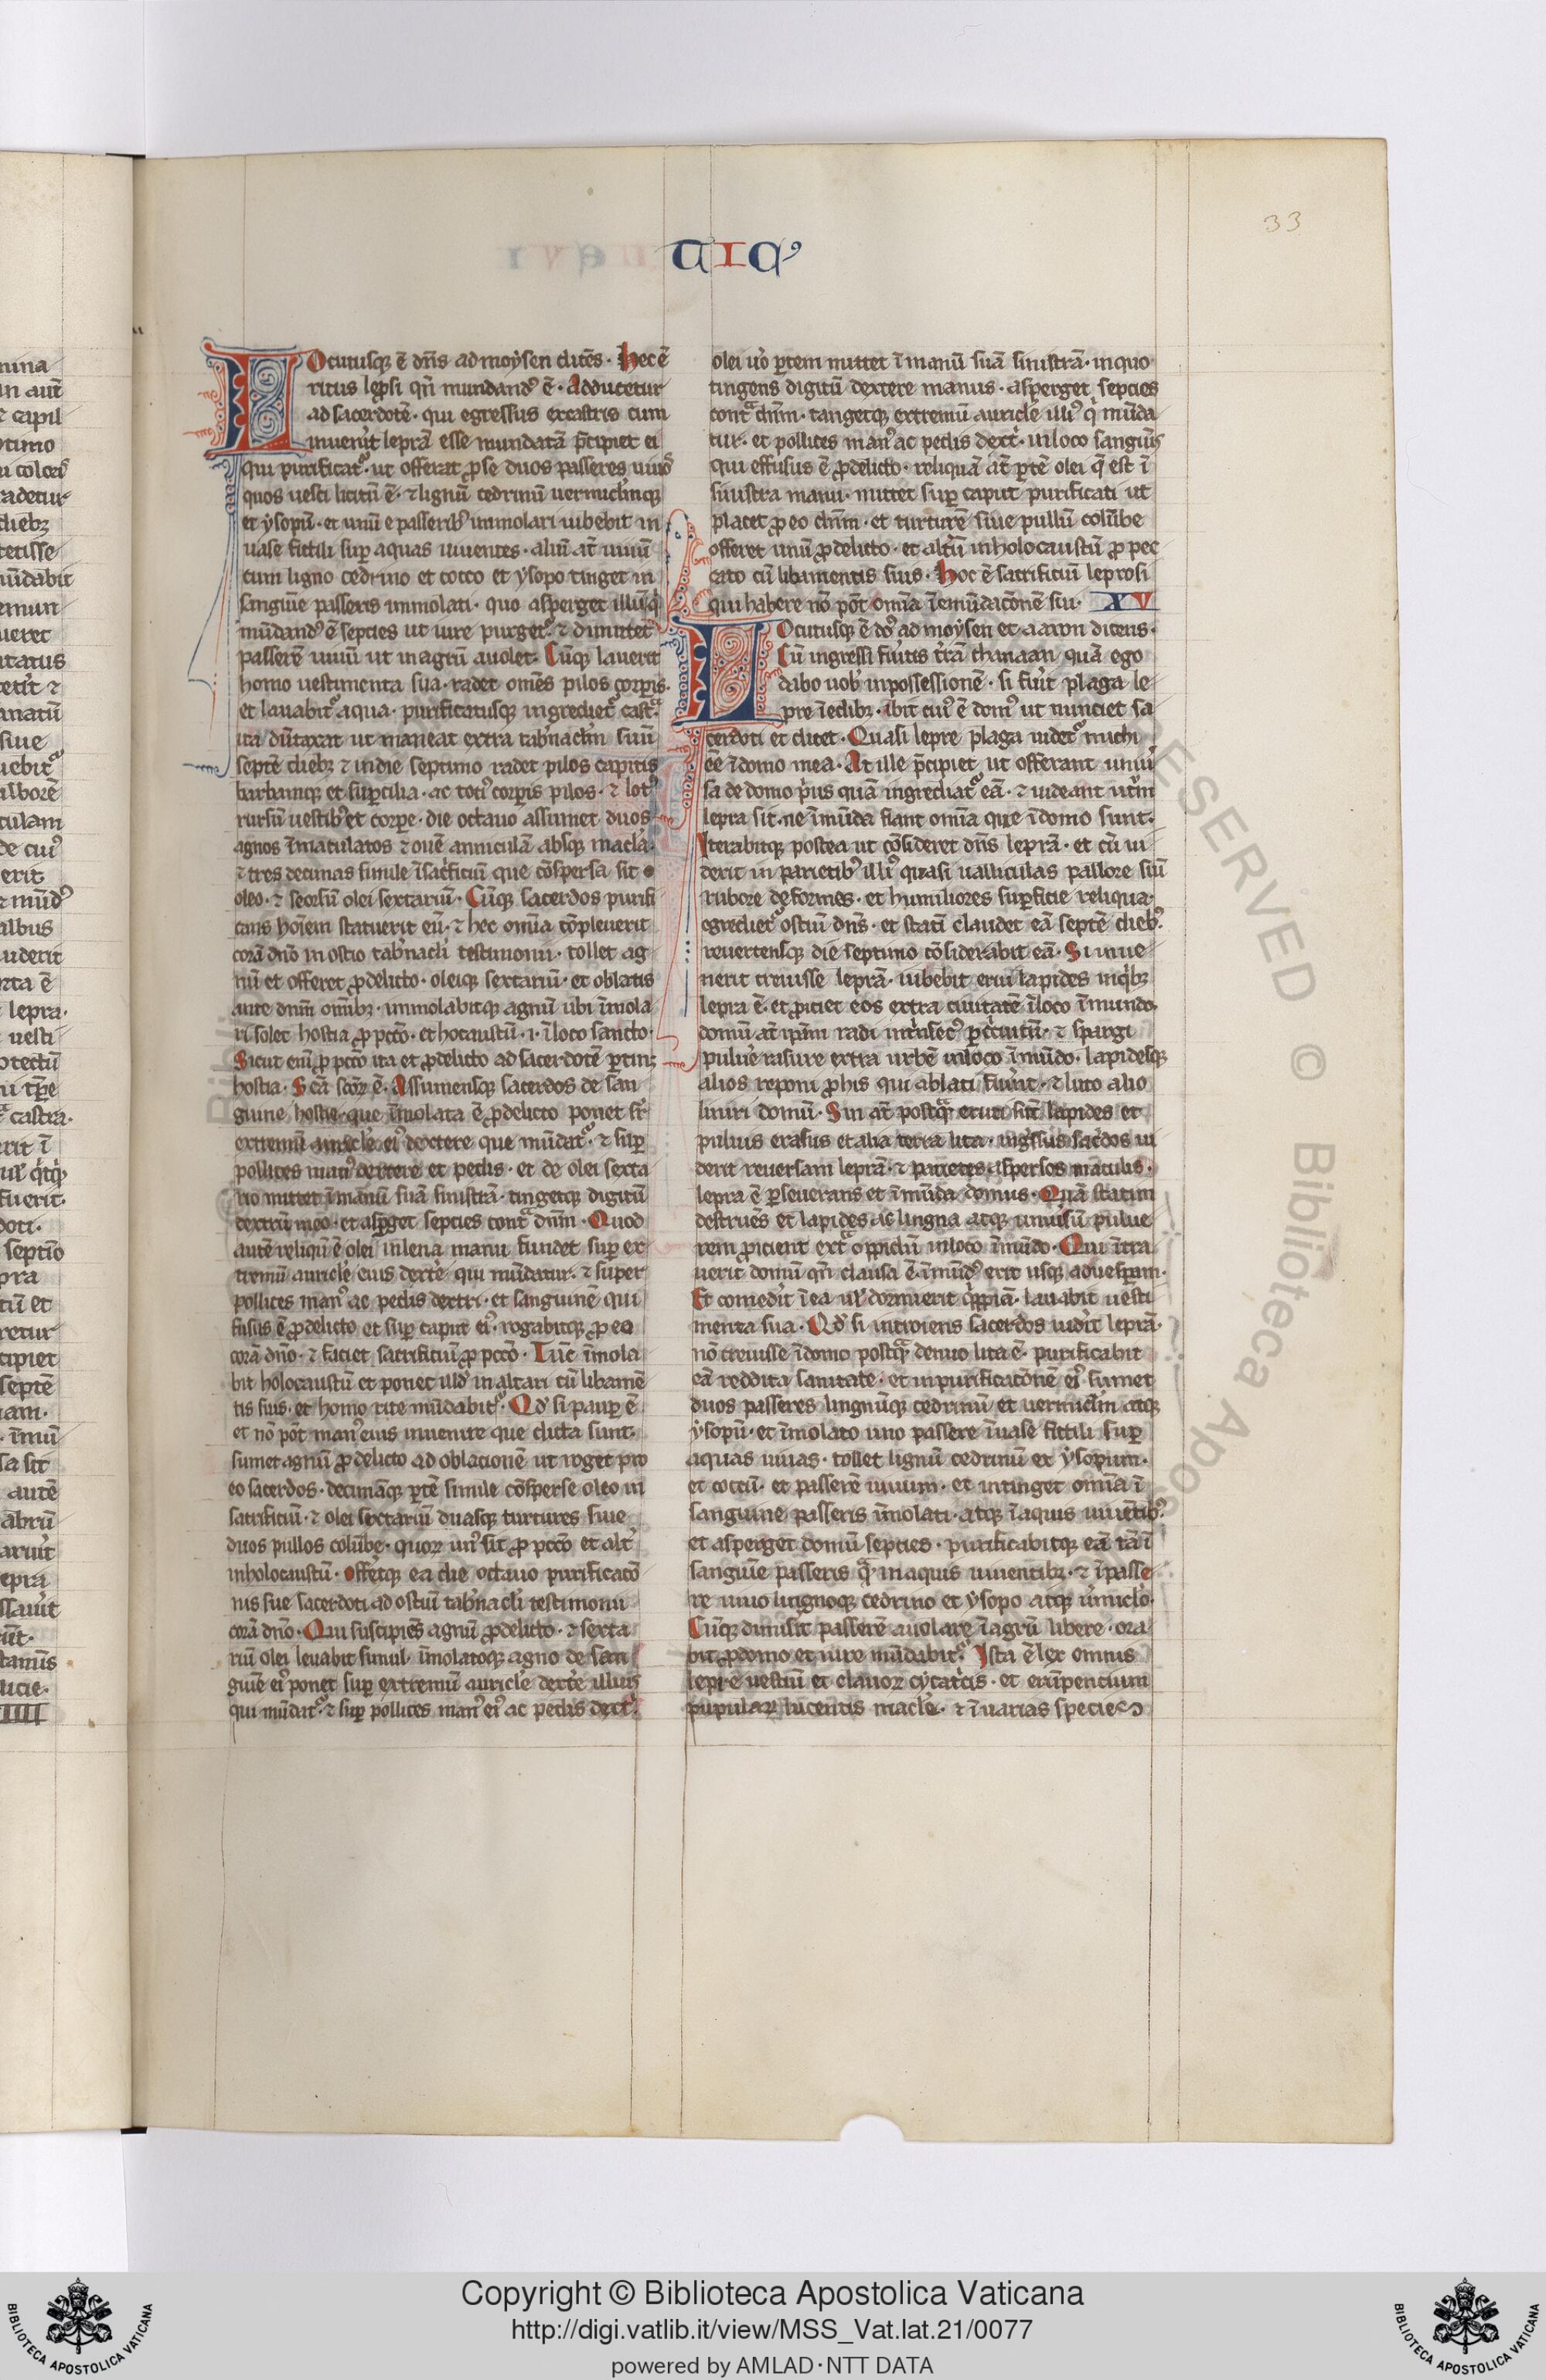 33
TIC᾿
LOcutusq; ē dn̄s ad moysen dicēs· Hec ē
ritus lep̄si qn̄ mundandꝰ ē· Adducetur
ad sacerdotē· qui egressus excastris cum
inuenit leprā esse mundatā p̄cipiet ei
qui purificat᷑· ut offerat ꝓ se duos passeres uiuos
quos uesci licitū ē· ⁊ lignū cedrinū uermiclūnq;
et ysopū· et unū e passeribꝰ immolari iubebit in
uase fictili sup̱ aquas uiuentes· aliū aūt uiuū
cum ligno cedrino et cocco et ysopo tinget in
sanguīe passeris immolati· quo asperget illū q̇
mūdandꝰ ē septies ut iure purget᷑· ⁊ dimittet
passerē uiuū ut in agrū auolet· Cūq; lauerit
homo uestimenta sua· radet om̄es pilos corꝑis·
et lauabit᷑ aqua· purificatusq; ingrediet᷑ castᷓ·
ita dūtaxat ut maneat extra tab̄nacl̄m suū
septē diebꝫ ⁊ in die septimo radet pilos capitis
barbamq; et suꝑcilia· ac totiꝰ corꝑis pilos· ⁊ lotꝰ
rursū uestibꝰ et corꝑe· die octauo assumet duos
agnos īmaculatos ⁊ ouē anniculā absq; macl̄a·
⁊ tres decimas simile ī sac̄ficiū que cōspersa sit
oleo· ⁊ seorsū olei sextariū· Cūq; sacerdos purifi
cans hoīem statuerit eū· ⁊ hec om̄ia cōpleuerit
corā dn̄o in ostio tab̄nacl̄i testimonii· tollet ag
nū et offeret ꝓ delicto· oleiq; sextariū· et oblatis
ante dn̄m om̄ibꝫ· immolabitq; agnū ubi īmola
ri solet hostia ꝓ pc̄cō· et hocaustū· ·i· ī loco sancto·
Sicut eni ꝓ pc̄cō ita et ꝓ delicto ad sacerdotē ꝑtinꝫ
hostia· Sc̄a sc̄oꝝ ē· Assumensq; sacerdos de san
guine hostie que īmolata ē ꝓ delicto ponet sr̄
extremū auricl̄e eiꝰ dextere que mūdat᷑· ⁊ sup̱
pollices manꝰ dextere et pedis· et de olei sexta
rio mittet ī manū suā sinistrā· tingetq; digitū
dextrū in eo· et asꝑget septies contᷓ dn̄m· Quod
autē reliqū ē olei in leua manu fundet sup̱ ex
tremū auricl̄e eius dext̄e qui mūdatur· ⁊ super
pollices manꝰ ac pedis dextri· et sanguinē qui
fusus ē ꝓ delicto et sup̱ caput eiꝰ· rogabitq; ꝓ eo
corā dn̄o· ⁊ faciet sacrificiū ꝓ pc̄cō· Tūc īmola
bit holocaustū et ponet illd̄ in altari cū libamē
tis suis· et homo rite mūdabit᷑· Qd̄ si paup̱ ē
et nō pōt manꝰ eius inuenire que dicta sunt·
sumet agnū ꝓ delicto ad oblacionē ut roget pro
eo sacerdos· decimāq; ꝑtē simile cōsperse oleo in
sacrificiū· ⁊ olei sextariū duasq; turtures siue
duos pullos colūbe· quoꝝ unꝰ sit ꝓ pc̄cō et alt̄
in holocaustū· Offetq; ea die octauo purificatō
nis sue sacerdoti ad ostiū tab̄nacl̄i testimonii
corā dn̄o· Qui suscipiēs agnū ꝓ delicto· ⁊ sexta
riū olei leuabit simul· īmolatoq; agno de san
guīe eiꝰ ponet sup̱ extremū auricl̄e dext̄e illius
qui mūdat᷑· ⁊ sup̱ pollices manꝰ eiꝰ ac pedis dext̄·
olei uo̊ ꝑtem mittet ī manū suā sinistrā· in quo
tingens digitū dextere manus· asperget septies
contᷓ dn̄m· tangetq; extremū auricl̄e illiꝰ q̇ mūda
tur· et pollices manꝰ ac pedis dext̄· in loco sanguīs
qui effusus ē ꝓ delicto· reliquā aūt ꝑtē olei q̄ est ī
sinistra manu· mittet sup̱ caput purificati ut
placet ꝓ eo dn̄m· et turturē siue pullū colūbe
offeret unū ꝓ delicto· et alt̄ū in holocaustū ꝓ pec
cato cū libamentis suis· Hoc ē sacrificiū leprosi
qui habere nō pōt om̄ia ī emūdacōnē sui· XV
LOcutusq; ē dō̄s ad moysen et aaron dicens·
Cū ingressi fuitis t̄rā chanaan quā ego
dabo uob̄ in possessionē· si fuit plaga le
pre ī edibꝫ· ibit cuiꝰ ē domꝰ ut nunciet sa
cerdoti et dicet· Quasi lepre plaga uidet᷑ michi
eē ī domo mea· At ille p̄cipiet ut offerant uniū
sa de domo p̄us quā ingrediat᷑ eā· ⁊ uideant ut̄m
lepra sit· ne īmūda fiant om̄ia que ī domo sunt·
Iterabitq; postea ut cōsideret dn̄s leprā· et cū ui
derit in parietibꝰ illiꝰ quasi ualliculas pallore siū
rubore deformes· et humiliores suꝑficie reliqua·
egrediet᷑ ostiū dn̄s· et statī claudet eā septē diebꝰ·
reuertensq; die septimo cōsiderabit eā· Si inue
nerit creuisse leprā· iubebit erui lapides inq̇bꝫ
lepra ē· et ꝓiciet eos extra ciuitatē ī loco īmundo·
domū aūt ip̄am radi int̄nsecꝰ ꝑ c̄cuitū· ⁊ spargi
puluē rasure extra urbē in loco īmūdo· lapidesq;
alios reponi ꝓ his qui ablati fuint· ⁊ luto alio
liniri domū· Sin aūt postqᷓ eruti sūt lapides et
puluis erasus et alia terra lita· ing̃ssus sac̄dos ui
derit reuersam leprā· ⁊ parietes aspersos maculis·
lepra ē ꝑseuerans et īmūda domus· Quā statim
destruēs et lapides ac lingna atq; uniūsū pulue
rem ꝓicient extᷓ oppidū in loco īmūdo· Qui ītra
uerit domū qn̄ clausa ē· īmūdꝰ erit usq; ad uesꝑam·
Et comedit ī ea ul̄ dormierit q̇ppiā· lauabit uesti
menta sua· Qd̄ si introiens sacerdos uidit leprā·
nō creuisse ī domo postqᷓ denuo lita ē· purificabit
eā reddita sanitate· et in purificatōnē eiꝰ sumet
duos passeres lingnūq; cedrinū et uermicl̄m atq;
ysopū· et īmolato uno passere ī uase fictili sup̱
aquas uiuas· tollet lignū cedrinū et ysopum·
et coccū· et passerē uiuum· et intinget om̄ia ī
sanguine passeris īmolati· atq; ī aquis uiuētibꝰ·
et asperget domū septies· purificabitq; eā tā ī
sanguīe passeris qᷓ in aquis uiuentibꝫ· ⁊ ī passe
re uiuo lingnoq; cedrino et ysopo atq; ūmiclo·
Cūq; dimisit passerē auolare ī agrū libere· ora
bit ꝓ domo et iure mūdabit᷑· Ista ē lex omnis
lepre uestiū et
lucentis macl̄e· ⁊ ī uarias species
Copyright © Biblioteca Apostolica Vaticana
http://digi.vatlib.it/view/MSS_Vat.lat.21/0077
powered by AMLAD·NTT DATA
BIBLIOTECA APOSTOLICA VATICANA
BIBLIOTECA APOSTOLICA VATICANA